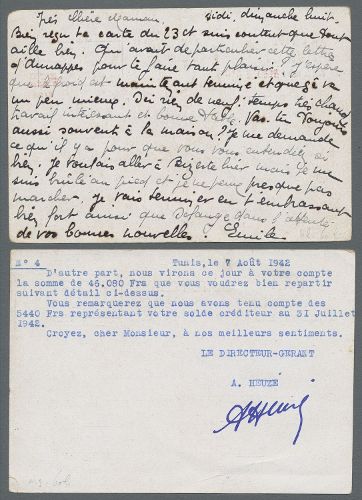 Très chère Maman, Sidi, dimanche huit.
Bien reçu ta carte du 23 et suis content que tout
aille bien. Qu'avait de particulier cette lettre
pour te faire tant plaisir. J'espère
que est maintenant terminé et que çà va
un peu mieux. Ici rien de neuf, temps très chaud
travail intéressant et bonne table. Vas-tu toujours
aussi souvent à la maison? Je me demande
ce qu'il y a pour que vous vous entendiez si
bien. Je voulais aller à Bizerte hier mais je me
suis brûlé au pied et je ne peux presque pas
marcher. Je vais terminer en t'embrassant
bien fort ainsi que dans l'attente
de vos bonnes nouvelles. Emile
N° 4 Tunis, le 7 Août 1942
D'autre part, nous virons ce jour à votre compte
la somme de 46.080 Frs que vous voudrez bien repartir
suivant détail ci-dessus.
Vous remarquerez que nous avons tenu compte des
5440 Frs représentant votre solde créditeur au 31 Juillet
1942.
Croyez, cher Monsieur, à nos meilleurs sentiments.
LE DIRECTEUR-GERANT
A. HEUZÉ